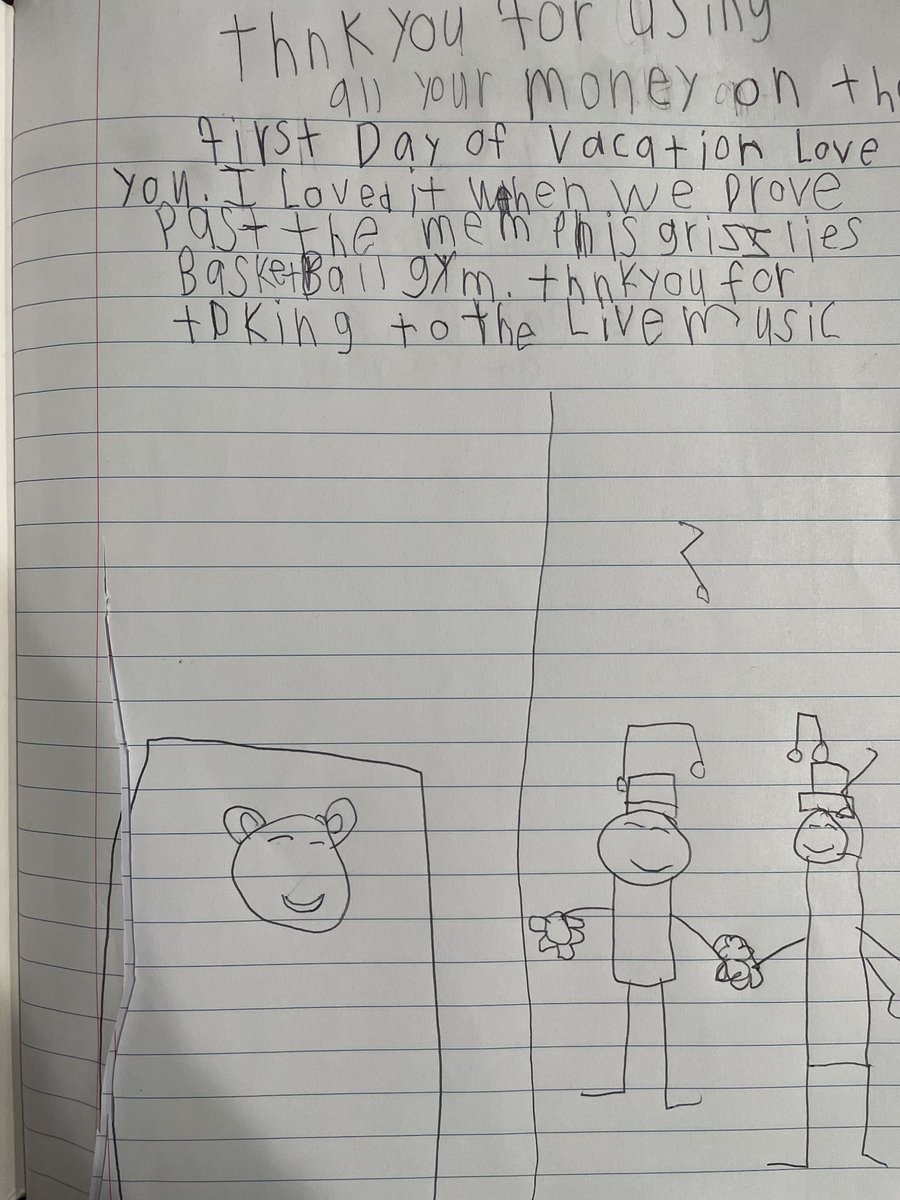 thnk you for using
all your money on the
first Day of vacation Love
you. I Loved it when we Drove
past the memphis grisslies
BasketBall gym. thnk you for
tDking to the Live music